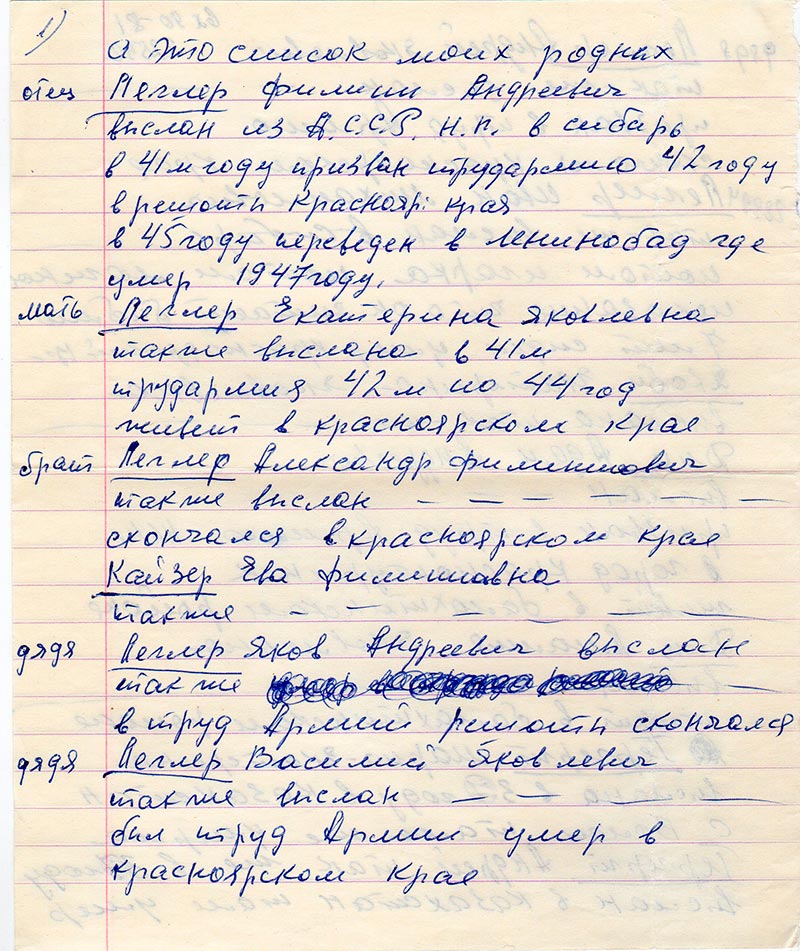 1)
а это список моих родных
отец Пеглер Филипп Андреевич
выслан из А.С.С.Р. Н.П. в сибирь
в 41м году призван трудармию 42 году
в решоты Краснояр: края
в 45 году переведен в Ленинобад где
умер 1947 году.
мать Пеглер Екатерина Яковлевна
также выслана в 41м
трудармия 42м по 44 год
живет в красноярском крае
брат Пеглер Александр Филиппович
также выслан — — — — — —
скончался в красноярском крае
Кайзер Ева Филипповна
также — — — — —
дядя Пеглер Яков Андреевич выслан
также
в труд Армии решоты скончался
дядя Пеглер Василий Яковлевич
также выслан — — — —
был труд Армии умер в
красноярском крае